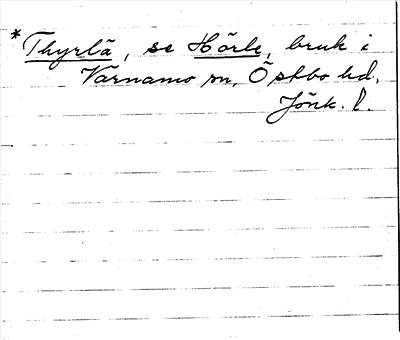 *Thyrlä, se Hörle, bruk i
Värnamo sn, Östbo hd,
Jönk. l.